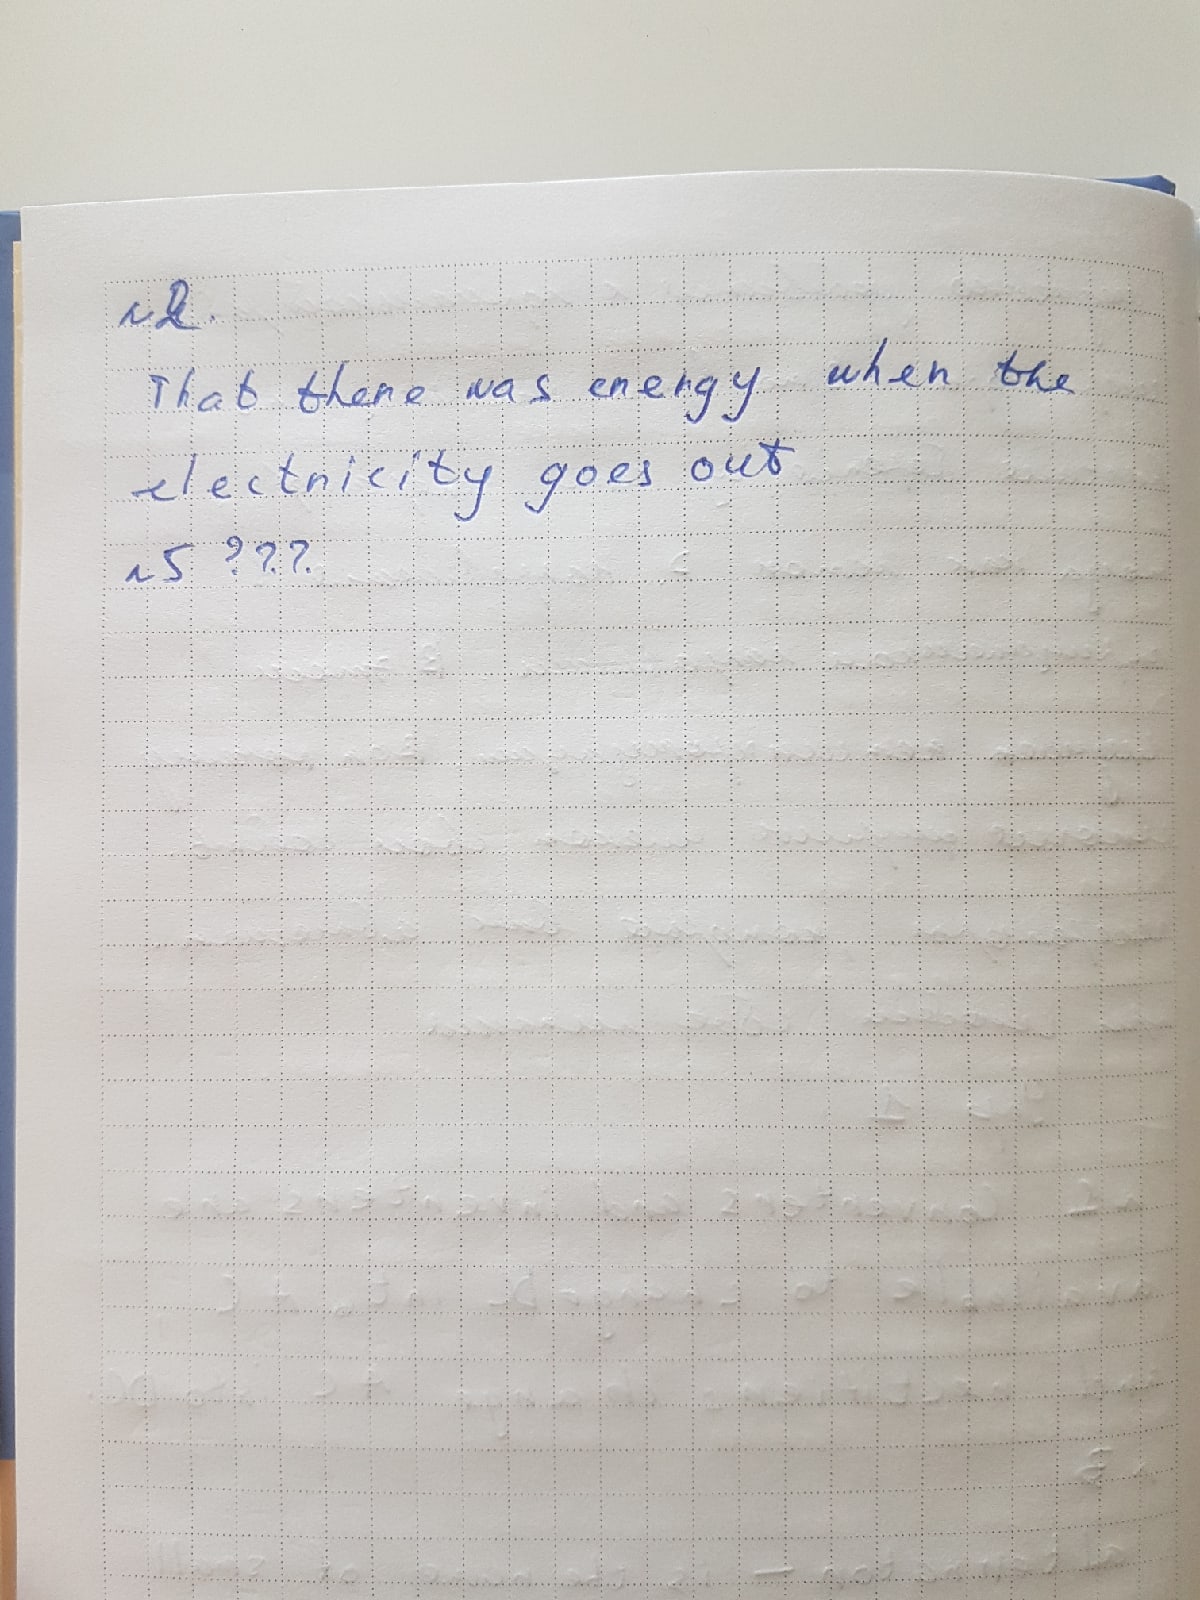 №2.
That there was energy when the
electricity goes out
№5 ???